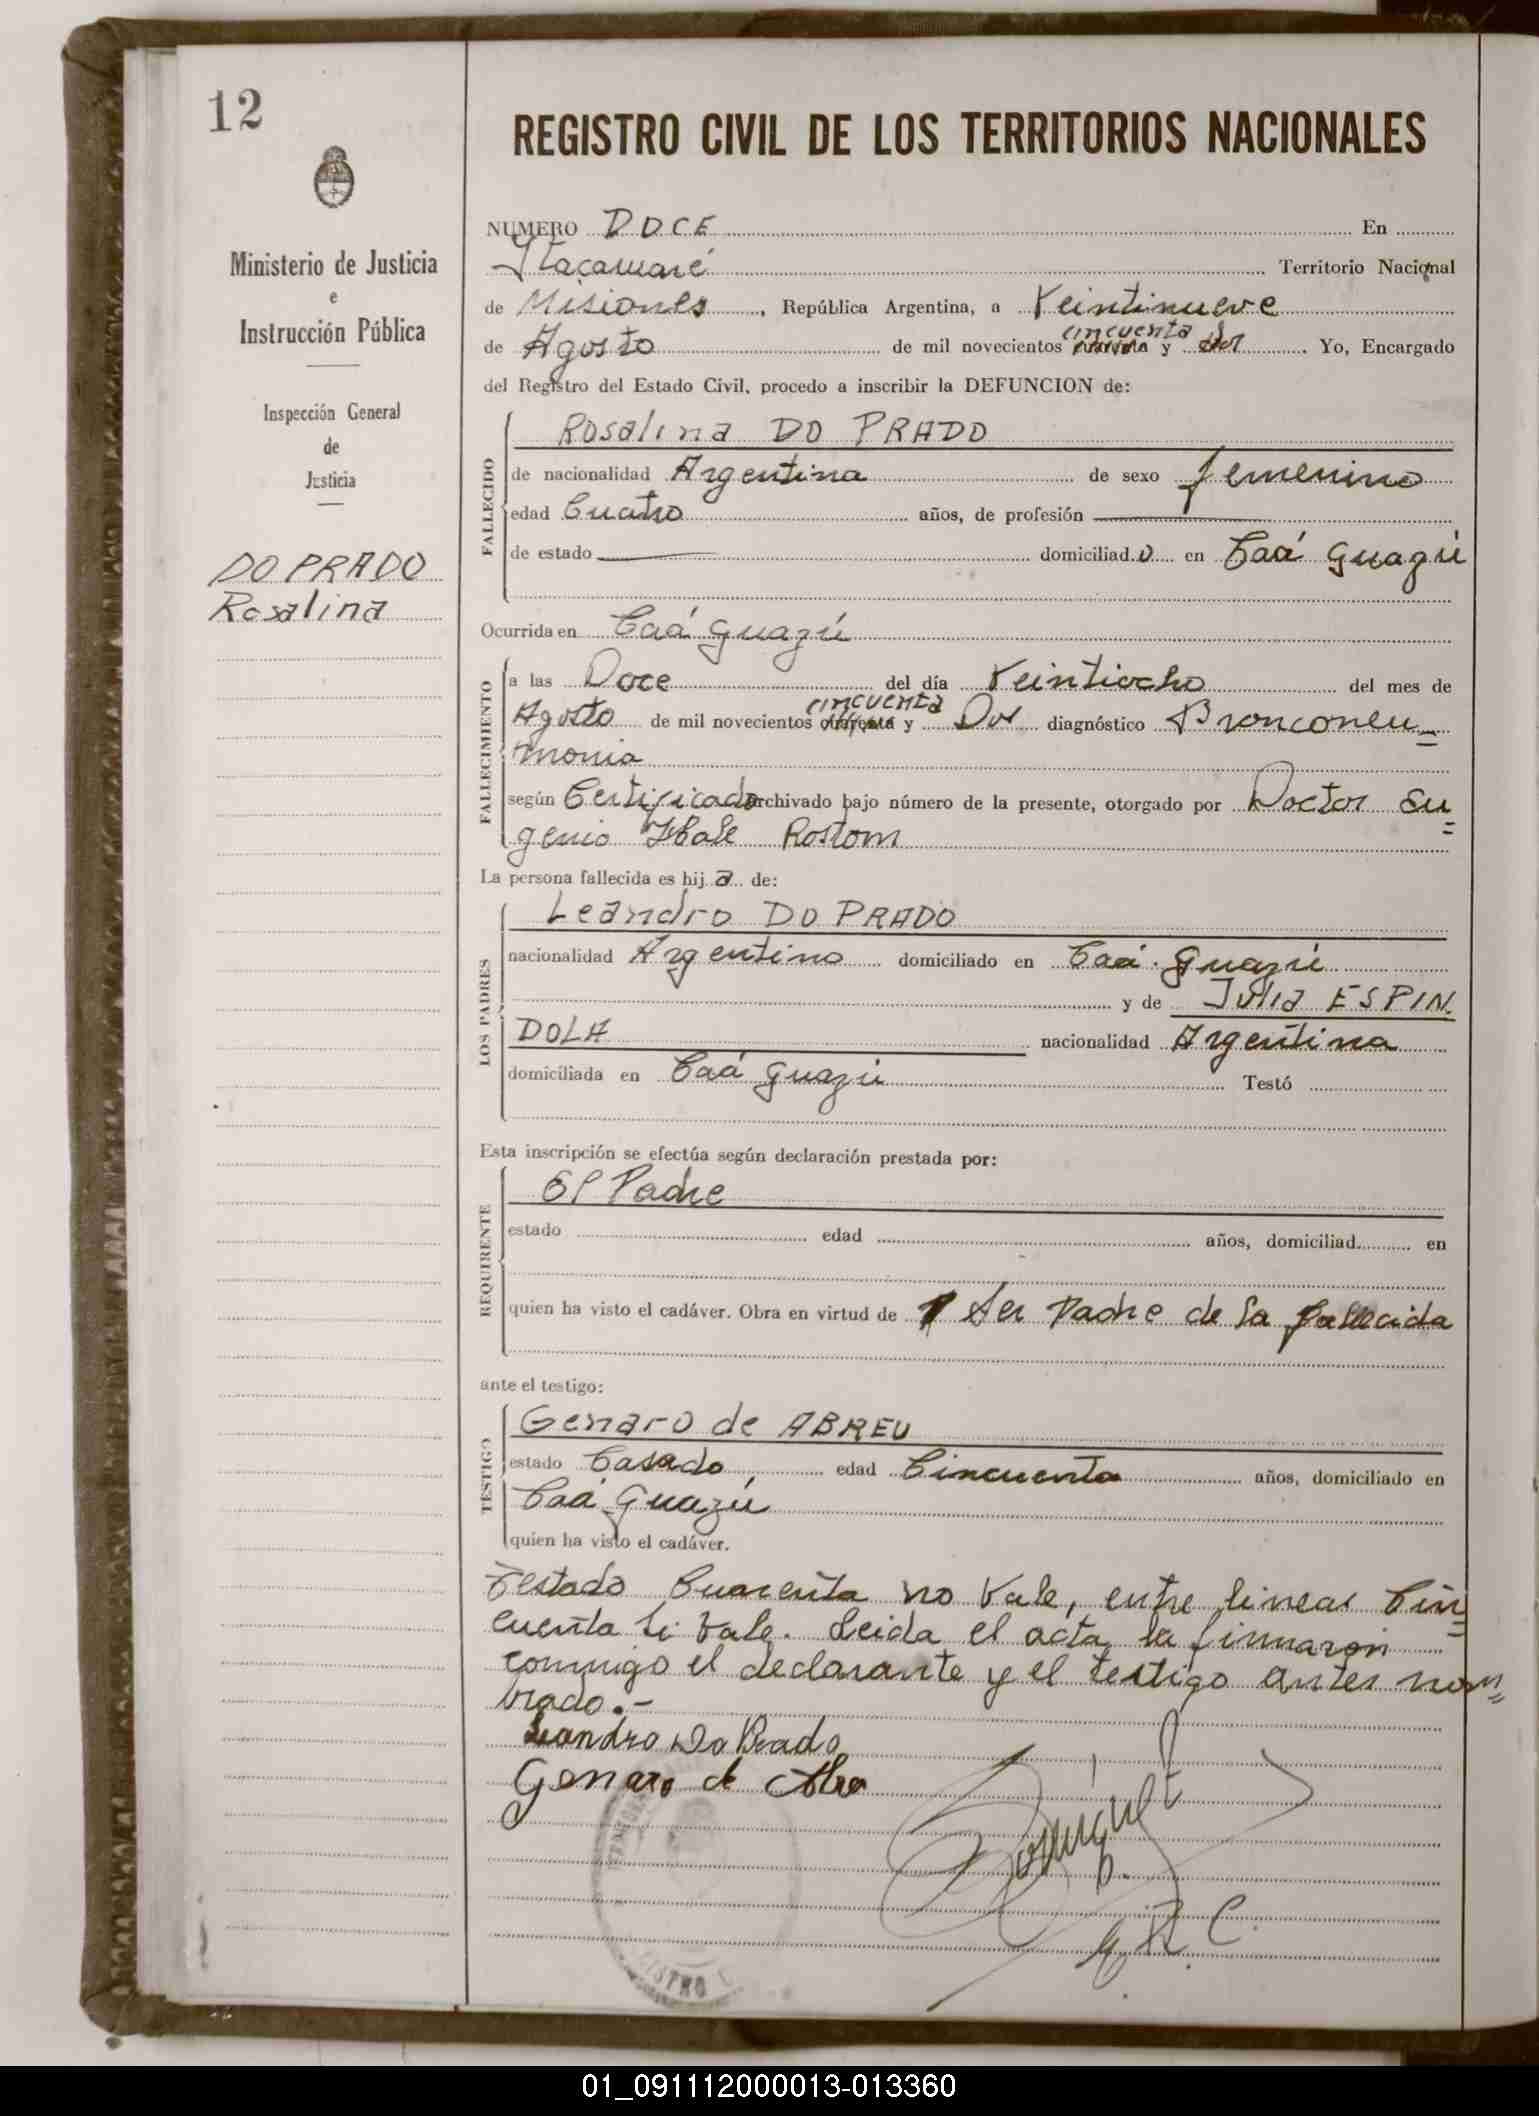 12
Ministerio de Justicia
e
Instrucción Pública
Inspección General
de
Justicia
DO PRADO
Rosalina
REGISTRO CIVIL DE LOS TERRITORIOS NACIONALES
NUMERO DOCE En
Itacaruaré Territorio Nacional
de Misiones, República Argentina, a Veintinueve
cincuenta
de Agosto de mil novecientos cuarenta y Dos. Yo, Encargado
del Registro del Estado Civil, procedo a inscribir la DEFUNCION de:
FALLECIDO
Rosalina DO PRADO
de nacionalidad Argentina de sexo femenino
edad Cuatro años, de profesión
de estado domiciliad o en Caá Guazú
Ocurrida en Caá Guazú
FALLECIMIENTO
a las Doce del día Veintiocho del mes de
cincuenta
Agosto de mil novecientos cuarenta y Dos diagnóstico Bronconeu=
monia
según Certificado archivado bajo número de la presente, otorgado por Doctor Eu=
genio Rostom
La persona fallecida es hij a de:
LOS PADRES
Leandro DO PRADO
nacionalidad Argentino domiciliado en Caá Guazú
y de Julia ESPIN.
DOLA nacionalidad Argentina
domiciliada en Caá Guazú Testó
Esta inscripción se efectúa según declaración prestada por:
REQUIRENTE
El Padre
estado edad años, domiciliad en
quien ha visto el cadáver. Obra en virtud de Ser Padre de la fallecida
ante el testigo:
TESTIGO
Genaro de ABREU
estado Casado edad Cincuenta años, domiciliado en
Caá Guazú
quien ha visto el cadáver.
Testado Cuarenta no Vale, entre lineas Cin=
cuenta Si Vale. Leida el acta, la firmaron
conmigo el declarante y el testigo antes nom=
brado.-
Leandro Do Prado
Genaro de Abre
E. R. C.
01_091112000013-013360